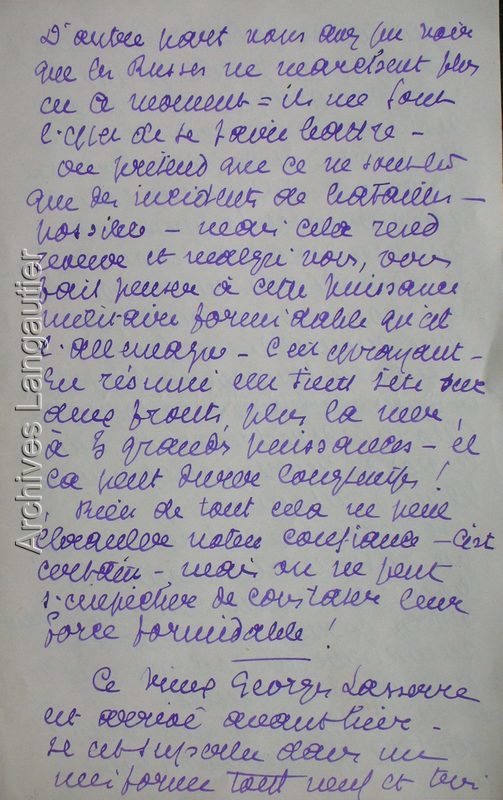 D'autre part nous avons pu voir
que les Russes ne marchent plus
en ce moment = ils ne font
que de se faire battre -
on prétend que ce ne sont là
que des incidents de batailles -
possible - mais cela rend
rêveur et malgré nous, vous
fait penser à cette puissance
militaire formidable qu'est
l'allemagne - C'est effrayant -
En résumé elle tient tête sur
deux fronts, plus la mer,
à 3 grandes puissances - et
ça peut durer longtemps !
Rien de tout cela ne peut
ébranler notre confiance - C'est
certain - mais on ne peut
s'empêcher de constater leur
force formidable !
Ce vieux Georges Lasserre
est arrivé avant hier -
Il est superbe dans un
uniforme tout neuf et
Archives Langautier